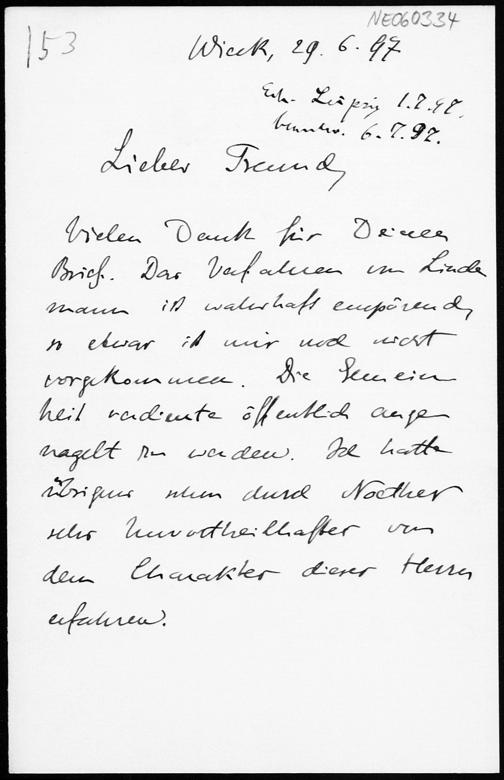 NE060334
153
Wieck, 29. 6. 97
Erh. Leipzig 1.7.97.
beantw. 6.7.97.
Lieber Freund,
Vielen Dank für Deinen
Brief. Das Verfahren von Linde
mann ist wahrhaft empörend,
so etwas ist mir noch nicht
vorgekommen. Die Gemein
heit verdiente öffentlich ange
nagelt zu werden. Ich hatte
übrigens schon durch Noether
sehr Unvortheilhaftes von
dem Charakter dieses Herrn
erfahren.